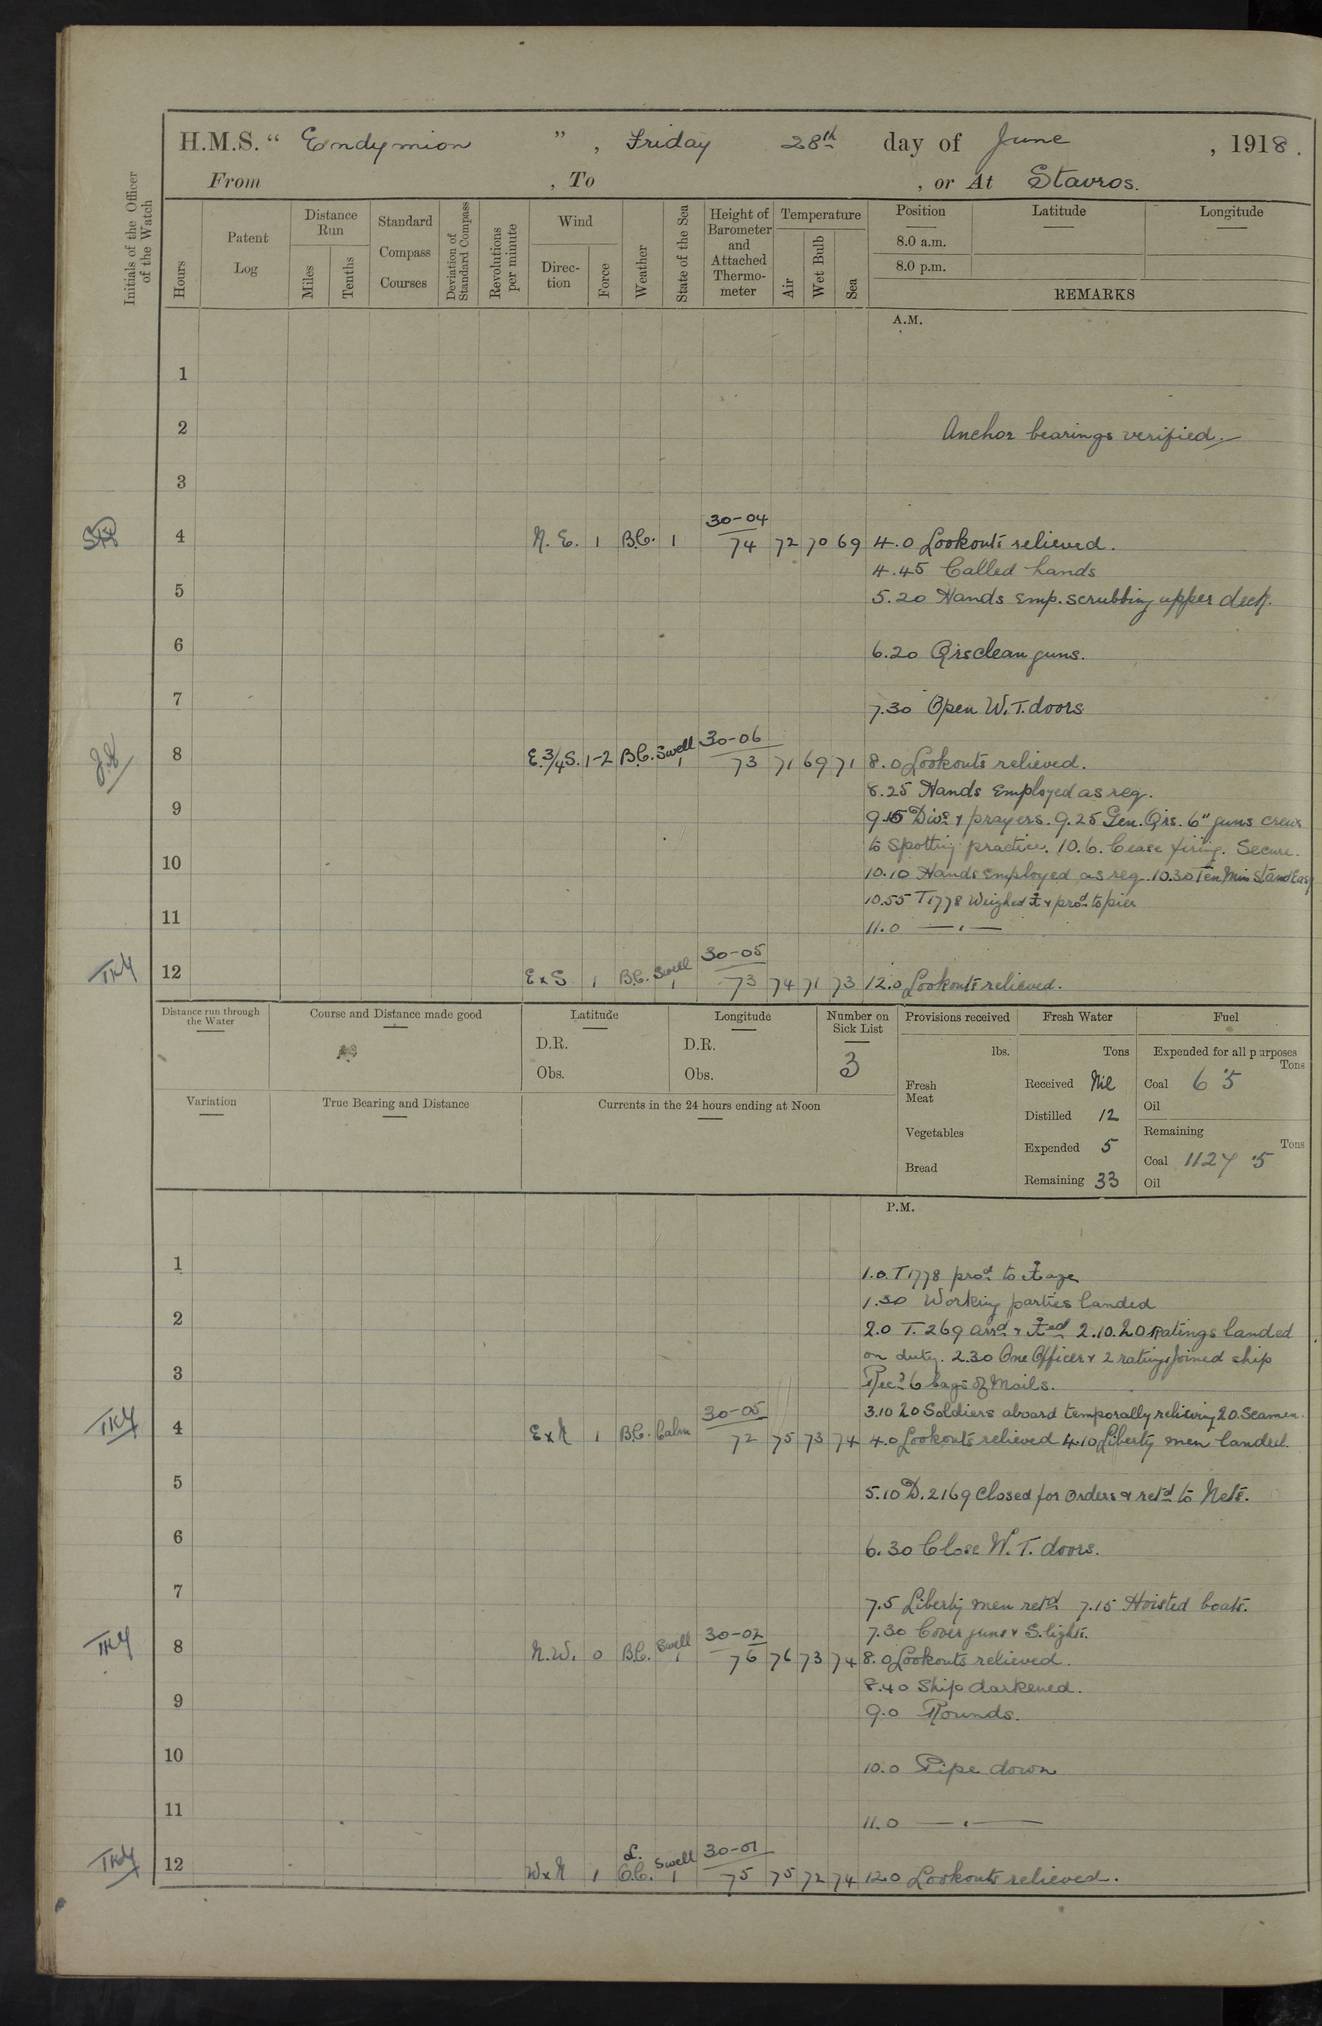 H.M.S. “ Endymion ”, Friday 28th day of June, 1918.
From , To , or At Stavros.
Initials of the Officer of the Watch
Hours
Patent Log
Distance Run
Miles
Tenths
Standard Compass Courses
Deviation of Standard Compass
Revolutions per minute
Wind
Direction
Force
Weather
State of the Sea
Height of Barometer and Attached Thermometer
Temperature
Air
Wet Bulb
Sea
Position
8.0 a.m.
8.0 p.m.
Latitude
Longitude
REMARKS
A.M.
1
2 Anchor bearings verified.
3
30-04
4 N. E. 1 B.C. 1 74 72 70 69 4.0 Lookouts relieved.
4.45 Called hands
5 5.20 Hands emp. scrubbing upper deck.
6 6.20 Qrs clean guns.
7 7.30 Open W.T. doors
30-06
8 E.3/4S. 1-2 B.C. Swell 1 73 71 69 71 8.0 Lookouts relieved.
8.25 Hands Employed as req.
9 9.15 Divs & prayers. 9.25 Gen. Qrs. 6" guns crews
to spotting practice. 10.6. Cease firing. Secure.
10 10.10 Hands employed as req. 10.30 Ten Min Stand Easy
10.55 T1778 Weighed ⚓ & procd to pier
11 11.0 — " —
30-05
TKY 12 E x S 1 B.C. Swell 1 73 74 71 73 12.0 Lookouts relieved.
Distance run through the Water
Course and Distance made good
Latitude
D.R.
Obs.
Longitude
D.R.
Obs.
Number on Sick List
3
Provisions received
lbs.
Fresh Meat
Vegetables
Bread
Fresh Water
Tons
Received Nil
Distilled 12
Expended 5
Remaining 33
Fuel
Expended for all purposes
Tons
Coal 6.5
Oil
Remaining
Tons
Coal 1127.5
Oil
Variation
True Bearing and Distance
Currents in the 24 hours ending at Noon
P.M.
1 1.0. T1778 procd to ⚓age
1.30 Working parties landed
2 2.0 T. 269 arrd & ⚓ed 2.10. 20 Ratings landed
on duty. 2.30 One Officer & 2 ratings joined ship
3 Recd 6 bags of Mails.
30-05 3.10 20 Soldiers aboard temporally relieving 20 Seamen.
TKY 4 E x N 1 B.C. Calm 72 75 73 74 4.0 Lookouts relieved 4.10 Liberty men landed.
5 5.10 D.2169 closed for orders & retd to Nets.
6 6.30 Close W.T. doors.
7 7.5 Liberty men retd 7.15 Hoisted boats.
30-02 7.30 Cover guns & S. lights.
TKY 8 N.W. 0 B.C. Swell 1 76 76 73 74 8.0 Lookouts relieved.
8.40 Ship darkened.
9 9.0 Rounds.
10 10.0 Pipe down
11 11.0 — " —
30-01
TKY 12 W x N 1 Swell 1 75 75 72 74 12.0 Lookouts relieved.